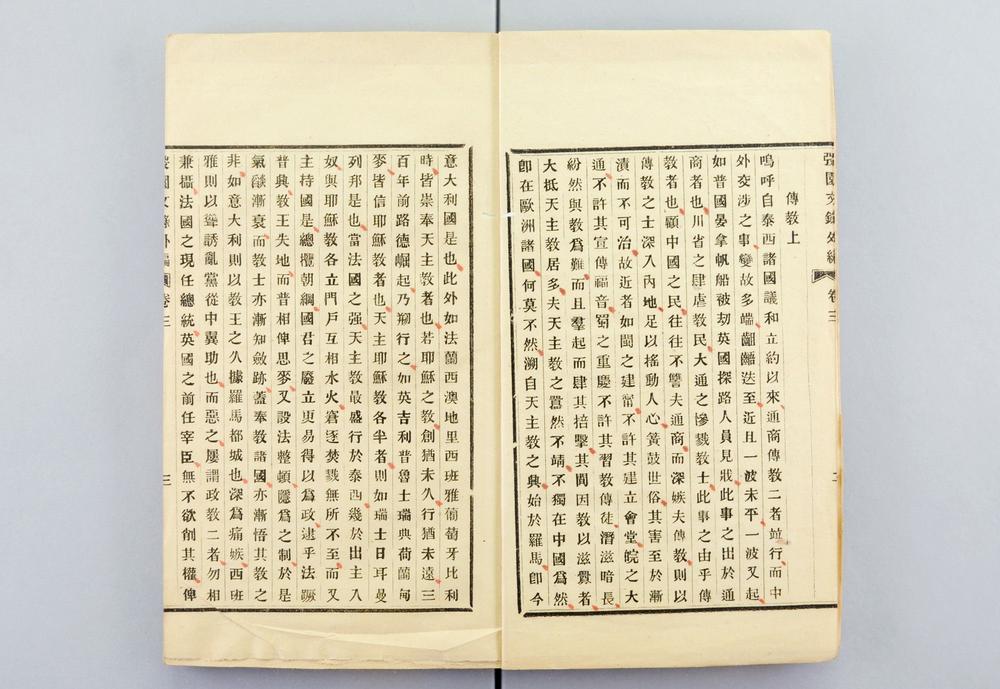 弢園文錄外編 卷三
傳教上
嗚呼自泰西諸國議和立約以來通商傳教二者並行而中
外交涉之事變故多端齟齬迭至近且一波未平一波又起
如普國晏拿帆船被劫英國探路人員見戕此事之出於通
商者也川省之肆虐教民大通之慘戮教士此事之由乎傳
教者也顧中國之民往往不讐夫通商而深嫉夫傳教則以
傳教之士深入內地足以搖動人心簧鼓世俗其害至於漸
漬而不可治故近者如閩之建甯不許其建立會堂皖之大
通不許其宣傳福音蜀之重慶不許其習教傳徒潛滋暗長
紛然與教爲難而且羣起而肆其掊擊其間因教以滋釁者
大抵天主教居多夫天主教之囂然不靖不獨在中國爲然
卽在歐洲諸國何莫不然溯自天主教之興始於羅馬卽今
意大利國是也此外如法蘭西澳地里西班雅葡萄牙比利
時皆崇奉天主教者也若耶穌之教創猶未久行猶未遠三
百年前路德崛起乃剏行之如英吉利普魯士瑞典荷蘭甸
麥皆信耶穌教者也天主耶穌教各半者則如瑞士日耳曼
列邦是也當法國之强天主教最盛行於泰西幾於出主入
奴與耶穌教各立門戶互相水火窘逐焚戮無所不至而又
主持國是總攬朝綱國君之廢立更易得以爲政逮乎法蹶
普興教王失地而普相俾思麥又設法整頓隱爲之制於是
氣燄漸衰而教士亦漸知斂跡蓋奉教諸國亦漸悟其教之
非如意大利則以教王之久據羅馬都城也深爲痛嫉西班
雅則以聳誘亂黨從中翼助也而惡之屢謂政教二者勿相
兼攝法國之現任總統英國之前任宰臣無不欲削其權俾
弢園文錄外編 卷三 三